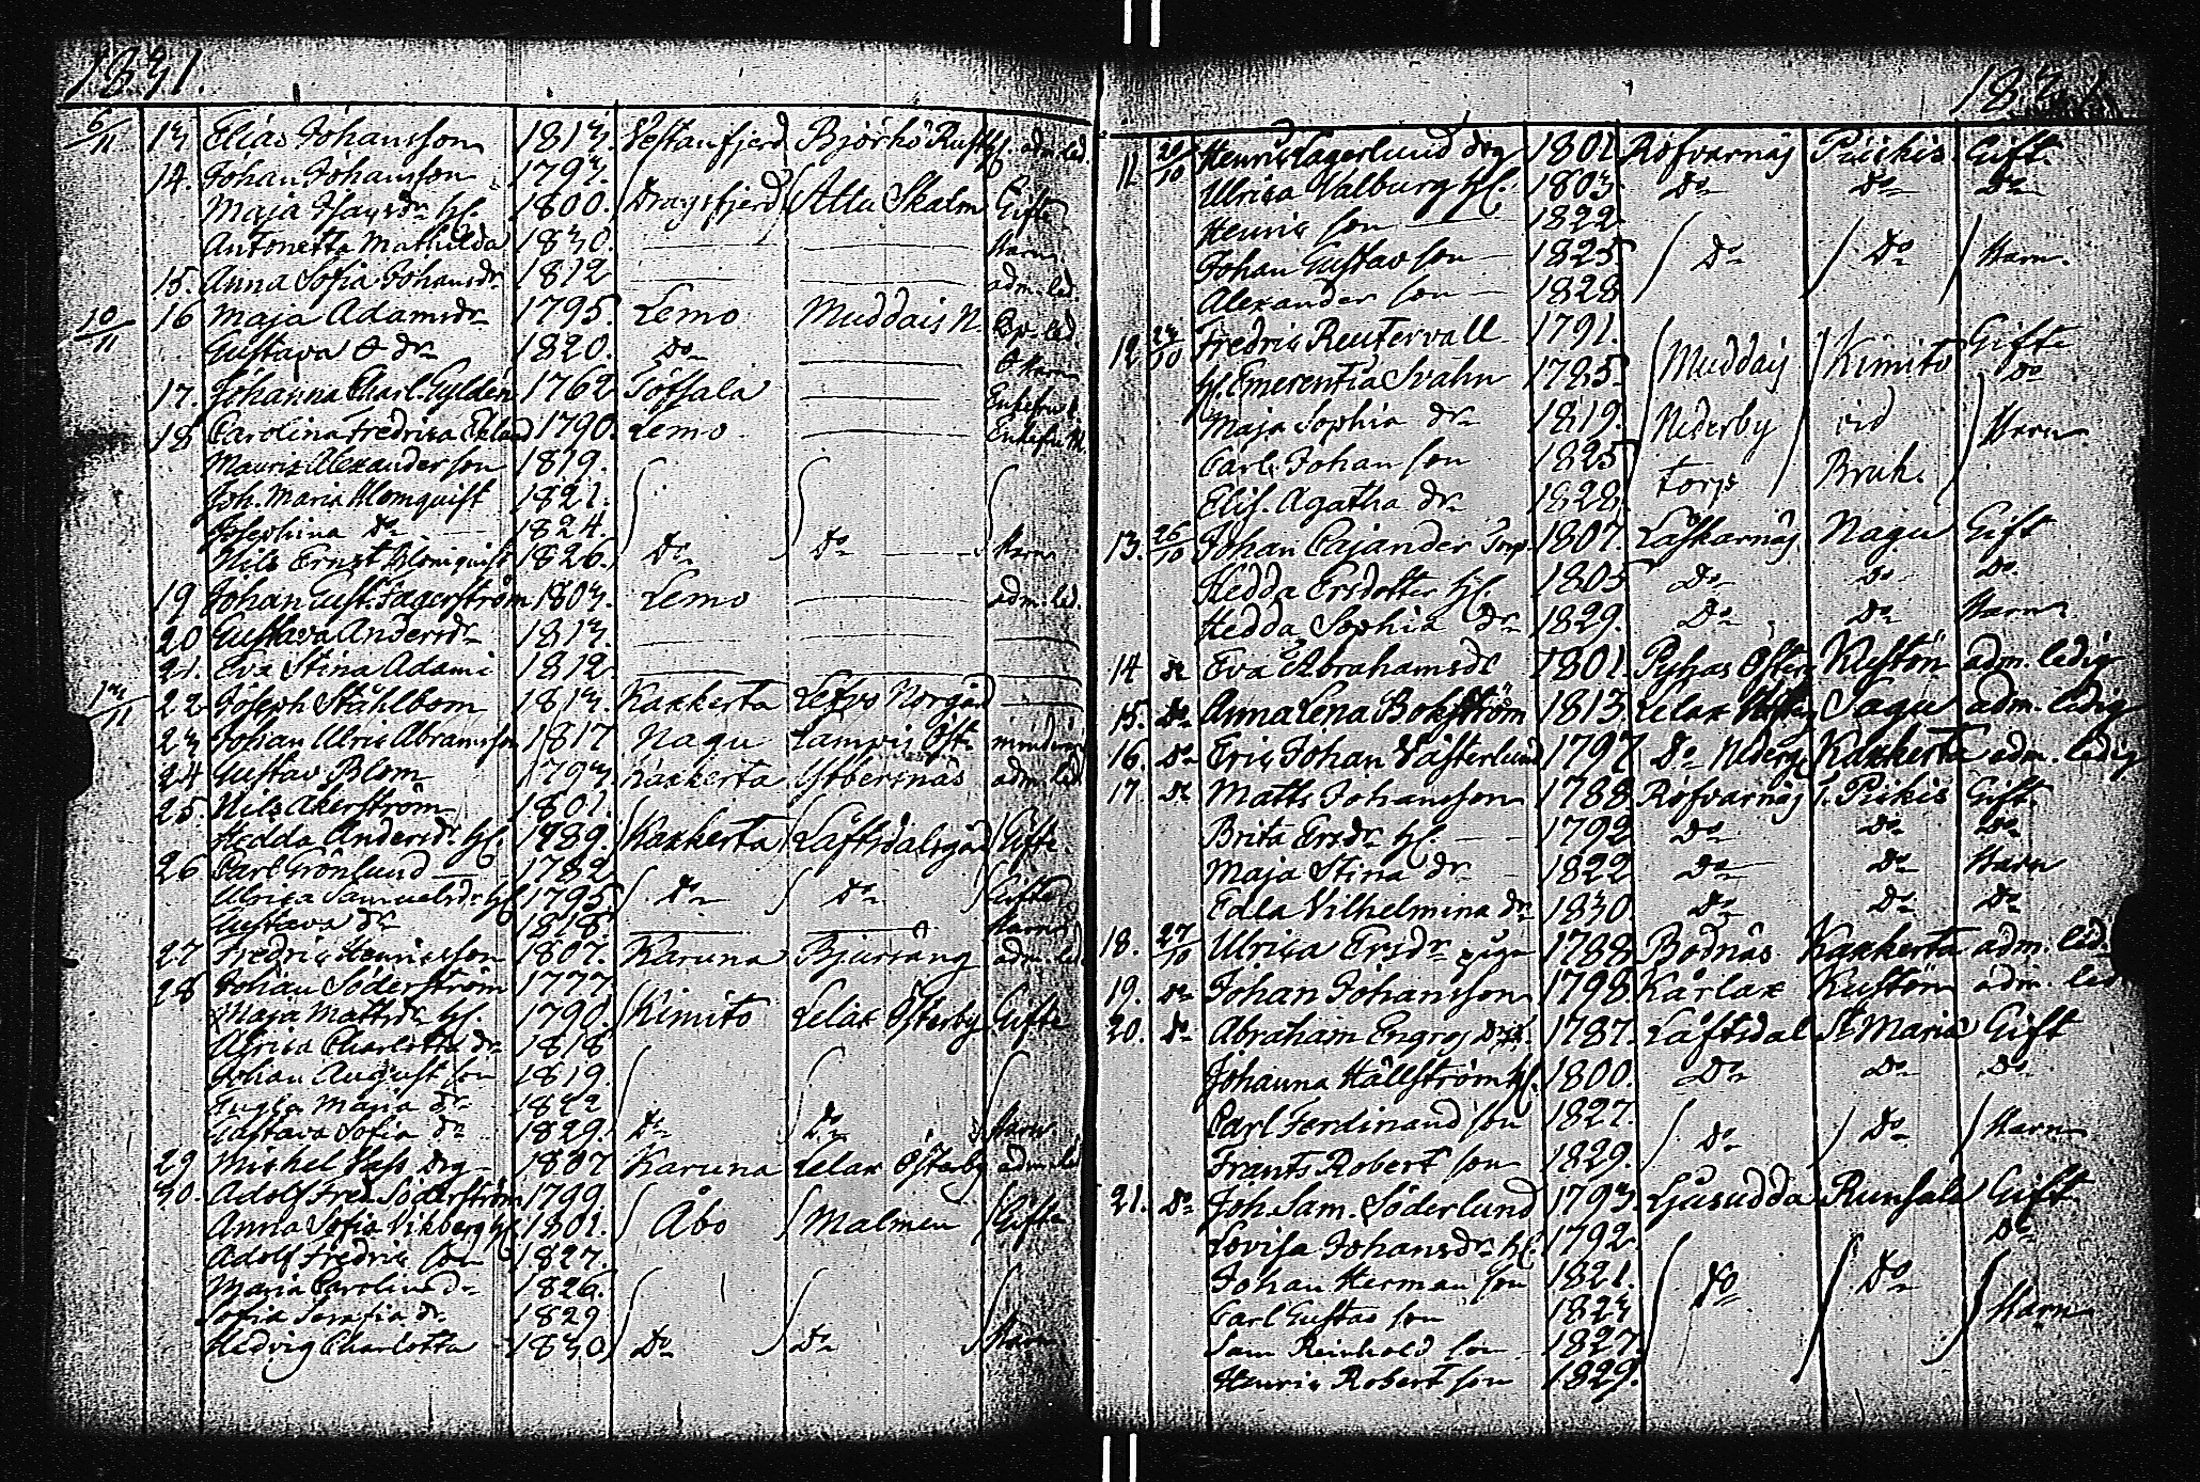 1831.
6/11 13 Elias Johansson 1813. Vestanfjerd Björkö Rusth. adm. led.
14. Johan Johansson 1793.
Maja Isaysdr hu. 1800. Dragsfjerd Attu Skalm Gifte
Antonetta Mathilda 1830. Barn.
15. Anna Sofia Johansdr 1812 adm. led.
10/11 16 Maja Adamsdr 1795. Lemo Muddais N. led.
Gustava dr 1820. Do
17. Johanna Charl. Gylden 1762 Töfsala Enkefru
18 Carolina Fredrica Eklund 1790. Lemo Enkefru
Mauritz Alexander son 1819.
Joh. Maria Blomquist 1821.
Josephina dr 1824.
Nils Ernst Blomquist 1826. Do Do Barn
19 Johan Gust. Fagerström 1803. Lemo adm. led.
20 Gustava Andersdr 1813.
21. Eva Stina Adami 1812
13/11 22 Joseph Ståhlbom 1813. Kakkerta Norgård
23 Johan Ulric Abramsson 1817 Nagu Öst.
24 Gustav Blom 1793 Kakkerta Ystbersnäs adm. led
25. Nils Åkerström 1801.
Hedda Andersdr. hu. 1789. Kakkerta Låftsdalsgård Gifte.
26 Carl Grönlund 1782
Ulrica Samuelsdr hu 1795 Do Do Gifte
Gustava dr 1818. Barn
27 Fredric Henricsson 1807. Karuna Bjursang adm. led
28 Johan Söderström 1777
Maja Mattsdr hu. 1790 Kimito Lelax Österby Gifte
Charlotta dr 1818
Johan August son 1819.
Maria dr 1822
Gustava Sofia dr 1829. Do Do Barn
29 Michel Hass drg 1807 Karuna Lelax Österby adm. led
30. Adolf Fred. Söderström 1799
Anna Sofia Vikberg hu 1801. Åbo Malmen Gifte
Adolf Fredric son 1827.
Maria Carolina dr 1826.
Sofia Serafia dr 1829
Hedvig Charlotta 1830 Do Do Barn
1831.
11. 20/10 Henric Lagerlund drg 1801 Röfvarnäs Piickis Gift.
Ulrica Valburg hu. 1803. Do Do Do
Henric son 1822
Johan Gustav son 1825 Do Do Barn.
Alexander son 1828
12 23/10 Fredric Reutervall 1791. Gifte
hu. Emerentia Svahn 1785. Muddais Kimito Do
Maja Sophia dr 1819. Nederby vid Barn
Carl Johan son 1825 torp Bruk.
Elis. Agatha dr 1828.
13. 26/10 Johan Cajander Torp. 1807. Laskarnäs Nagu Gift
Hedda Ersdotter hu. 1805 Do Do Do
Hedda Sophia dr 1829. Do Do Barn
14 do Eva Abrahamsdr 1801. Pyhas Öster Kustön adm. ledig
15. do Anna Lena Bokström 1813. Lelax Sagu adm. ledig
16. do Eric Johan Västerlund 1797 Do Nederg Kakkerta adm. ledig
17. do Matts Johansson 1788. Röfvarnäs T. Piickis Gift
Brita Ersdr hu. 1792 Do Do Do
Maja Stina dr 1822 Do Do Barn
Edla Vilhelmina dr 1830 Do Do Do
18. 27/10 Ulrica Ersdr piga 1788 Bodnäs Kakkerta adm. led.
19. do Johan Johansson 1798 Kårlax Kustön adm. led
20. do Abraham Engros 1787. Låftsdal St Maria Gift
Johanna Hällström hu. 1800. Do Do Do
Carl Ferdinand son 1827.
Frants Robert son 1829. Do Do Barn
21. do Joh. Sam. Söderlund 1793. Ljusudda Runsala Gift.
Lovisa Johansdr hu. 1792. Do
Johan Herman son 1821. Do Do
Carl Gustav son 1823 Barn
Sam Reinhold son 1827
Henric Robert son 1829.